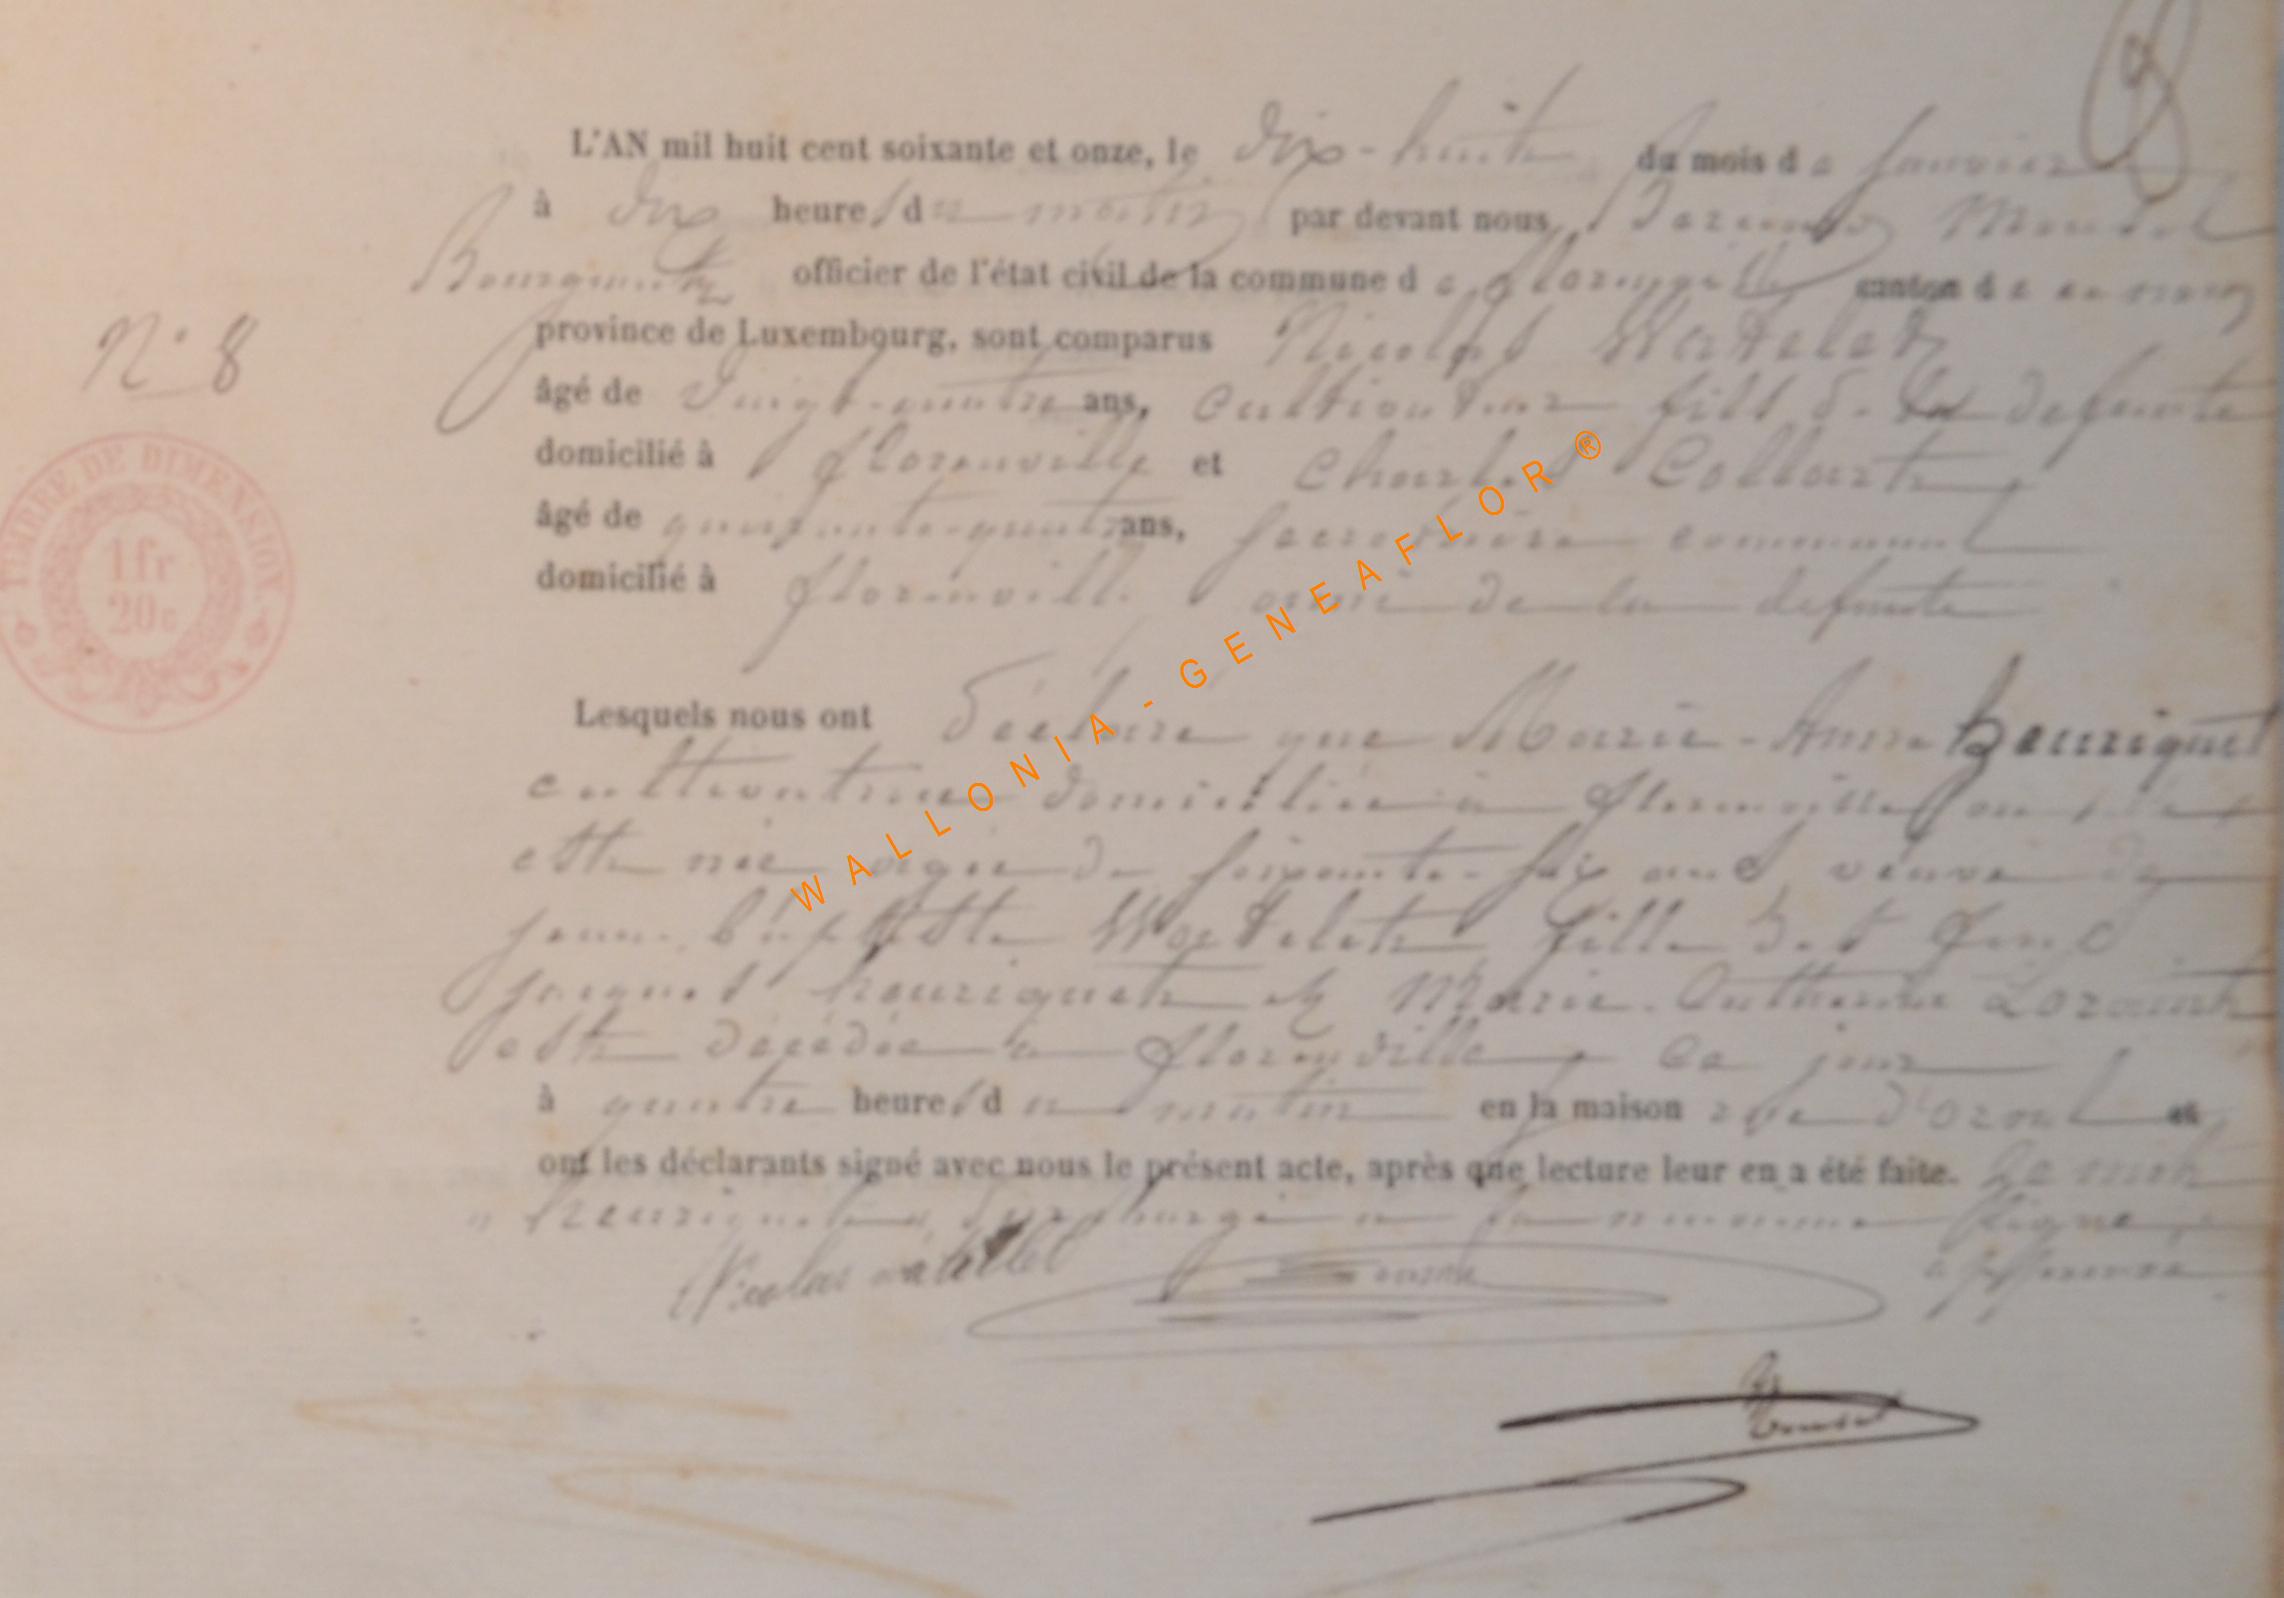 L'AN mil huit cent soixante et onze, le dix-huit du mois de janvier
à dix heures du matin par devant nous Mandel
Bourgmestre officier de l'état civil de la commune de florenville canton de
province de Luxembourg, sont comparus Nicolas Watelet
N° 8
âgé de vingt-quatre ans, Cultivateur fils de la defunte
domicilié à florenville et Charles Collart
âgé de ans, secrétaire communal
domicilié à florenville ami de la defunte
TIMBRE DE DIMENSION.
1fr
20c
Lesquels nous ont déclaré que Marie-Anne henriquet
cultivatrice domiciliée à florenville où elle
est née agée de soixante-six ans veuve de
jean baptiste Watelet fille des
jacques henriquet et Marie Catherine
est décédée à florenville ce jour
à quatre heures du matin en la maison rue d'orval et
ont les déclarants signé avec nous le présent acte, après que lecture leur en a été faite. Le mot
"henriquet" surchargé à la ligne
approuvé
Nicolas watelet
WALLONIA - GENEAFLOR ®